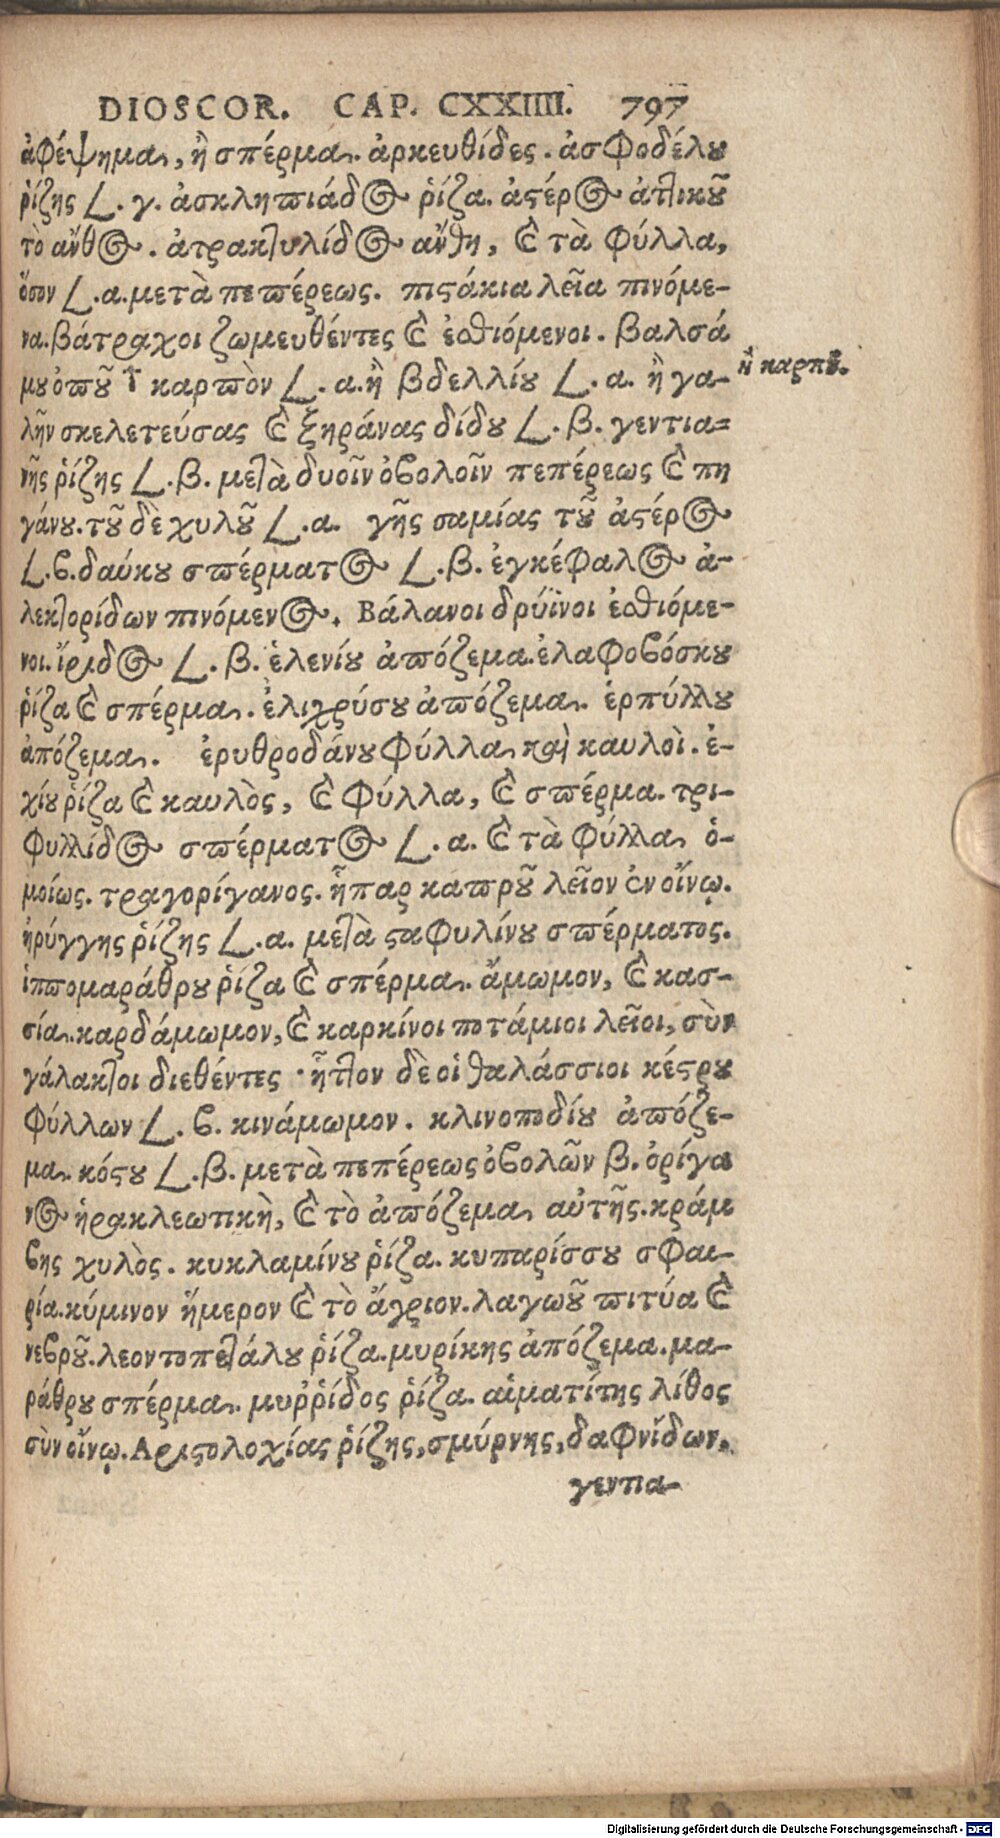 DIOSCOR. CAP. CXXIIII. 797
ἀφέψημα, ἢ σπέρμα. ἀρκευθίδες. ἀσφοδέλου
ῥίζης L. γ. ἀσκληπιάδος ῥίζα. ἀστέρος ἀττικοῦ
τὸ ἄνθος. ἀτρακτυλίδος ἄνθη, καὶ τὰ φύλλα,
ὅσον L. α. μετὰ πεπέρεως. πιστάκια λεῖα πινόμε-
να. βάτραχοι ζωμευθέντες καὶ ἐσθιόμενοι. βαλσά
μου ὀποῦ † καρπὸν L. α. ἢ βδελλίου L. α. ἢ γα-
ἢ καρποῦ.
λῆν σκελετεύσας καὶ ξηράνας δίδου L. β. γεντια=
νῆς ῥίζης L. β. μετὰ δυοῖν ὀβολοῖν πεπέρεως καὶ πη
γάνου. τοῦ δὲ χυλοῦ L. α. γῆς σαμίας τοῦ ἀστέρος
L. β. δαύκου σπέρματος L. β. ἐγκέφαλος ἀ-
λεκτορίδων πινόμενος. Βάλανοι δρύϊνοι ἐσθιόμε-
νοι. ἴριδος L. β. ἑλενίου ἀπόζεμα. ἐλαφοβόσκου
ῥίζα καὶ σπέρμα. ἐλιχρύσου ἀπόζεμα. ἑρπύλλου
ἀπόζεμα. ἐρυθροδάνου φύλλα καὶ καυλοὶ. ἐ-
χίου ῥίζα καὶ καυλὸς, καὶ φύλλα, καὶ σπέρμα. τρι-
φυλλίδος σπέρματος L. α. καὶ τὰ φύλλα ὁ-
μοίως. τραγορίγανος. ἧπαρ κάπρου λεῖον ἐν οἴνῳ.
ἠρύγγης ῥίζης L. α. μετὰ σταφυλίνου σπέρματος.
ἱππομαράθρου ῥίζα καὶ σπέρμα. ἄμωμον, καὶ κασ-
σία. καρδάμωμον, καὶ καρκίνοι ποτάμιοι λεῖοι, σὺν
γάλακτοι διεθέντες· ἧττον δὲ οἱ θαλάσσιοι κέστρου
φύλλων L. β. κινάμωμον. κλινοποδίου ἀπόζε-
μα. κόστου L. β. μετὰ πεπέρεως ὀβολῶν β. ὀρίγα
νος ἡρακλεωτικὴ, καὶ τὸ ἀπόζεμα αὐτῆς. κράμ
βης χυλὸς. κυκλαμίνου ῥίζα. κυπαρίσσου σφαι-
ρία. κύμινον ἥμερον καὶ τὸ ἄγριον. λαγωοῦ πιτύα καὶ
νεβροῦ. λεοντοπετάλου ῥίζα. μυρίκης ἀπόζεμα. μα-
ράθρου σπέρμα. μυῤῥίδος ῥίζα. αἱματίτης λίθος
σὺν οἴνῳ. Αριστολοχίας ῥίζης, σμύρνης, δαφνίδων,
γεντια-
Digitalisierung gefördert durch die Deutsche Forschungsgemeinschaft - DFG